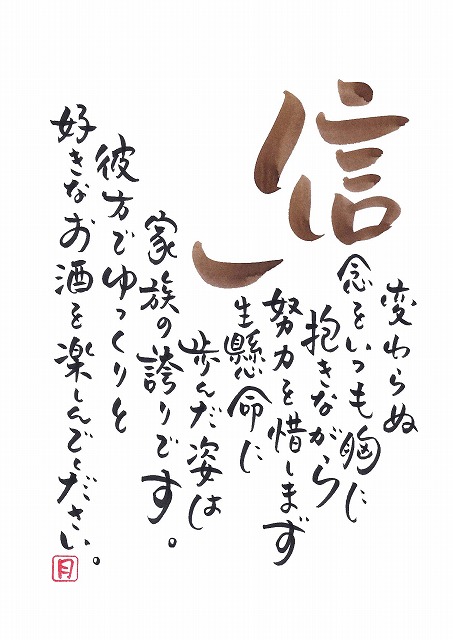 変わらぬ
信念をいつも胸に
抱きながら
努力を惜しまず
一生懸命に
歩んだ姿は
家族の誇りです。
彼方でゆっくりと
好きなお酒を楽しんでください。
月